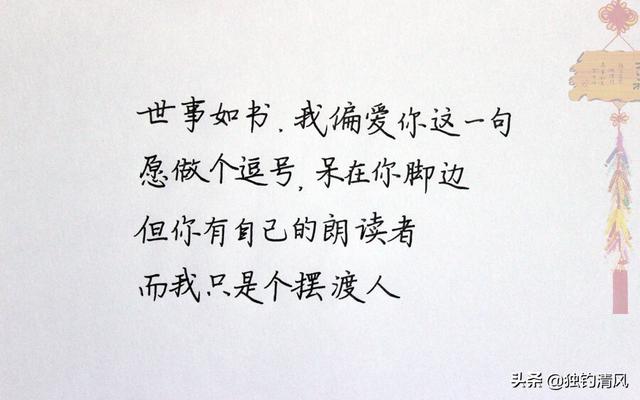 世事如书.我偏爱你这一句
愿做个逗号,呆在你脚边
但你有自己的朗读者
而我只是个摆渡人
头条 @独钓清风